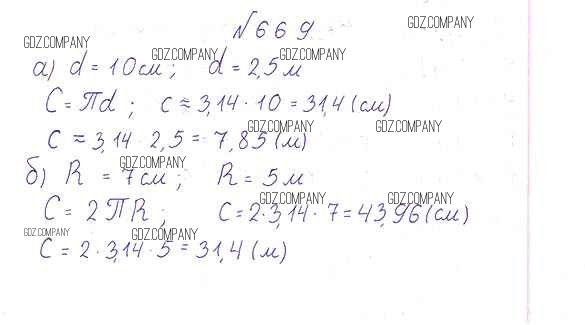 №669
GDZ.COMPANY
GDZ.COMPANY
GDZ.COMPANY
GDZ.COMPANY
а) d = 10 см ; d = 2,5 м
C = πd ; c ≈ 3,14 · 10 = 31,4 (см)
GDZ.COMPANY
GDZ.COMPANY
c ≈ 3,14 · 2,5 = 7,85 (м)
GDZ.COMPANY
б) R = 7 см ; R = 5 м
GDZ.COMPANY
GDZ.COMPANY
C = 2πR ; C = 2·3,14 · 7 = 43,96 (см)
GDZ.COMPANY
GDZ.COMPANY
C = 2 · 3,14 · 5 = 31,4 (м)